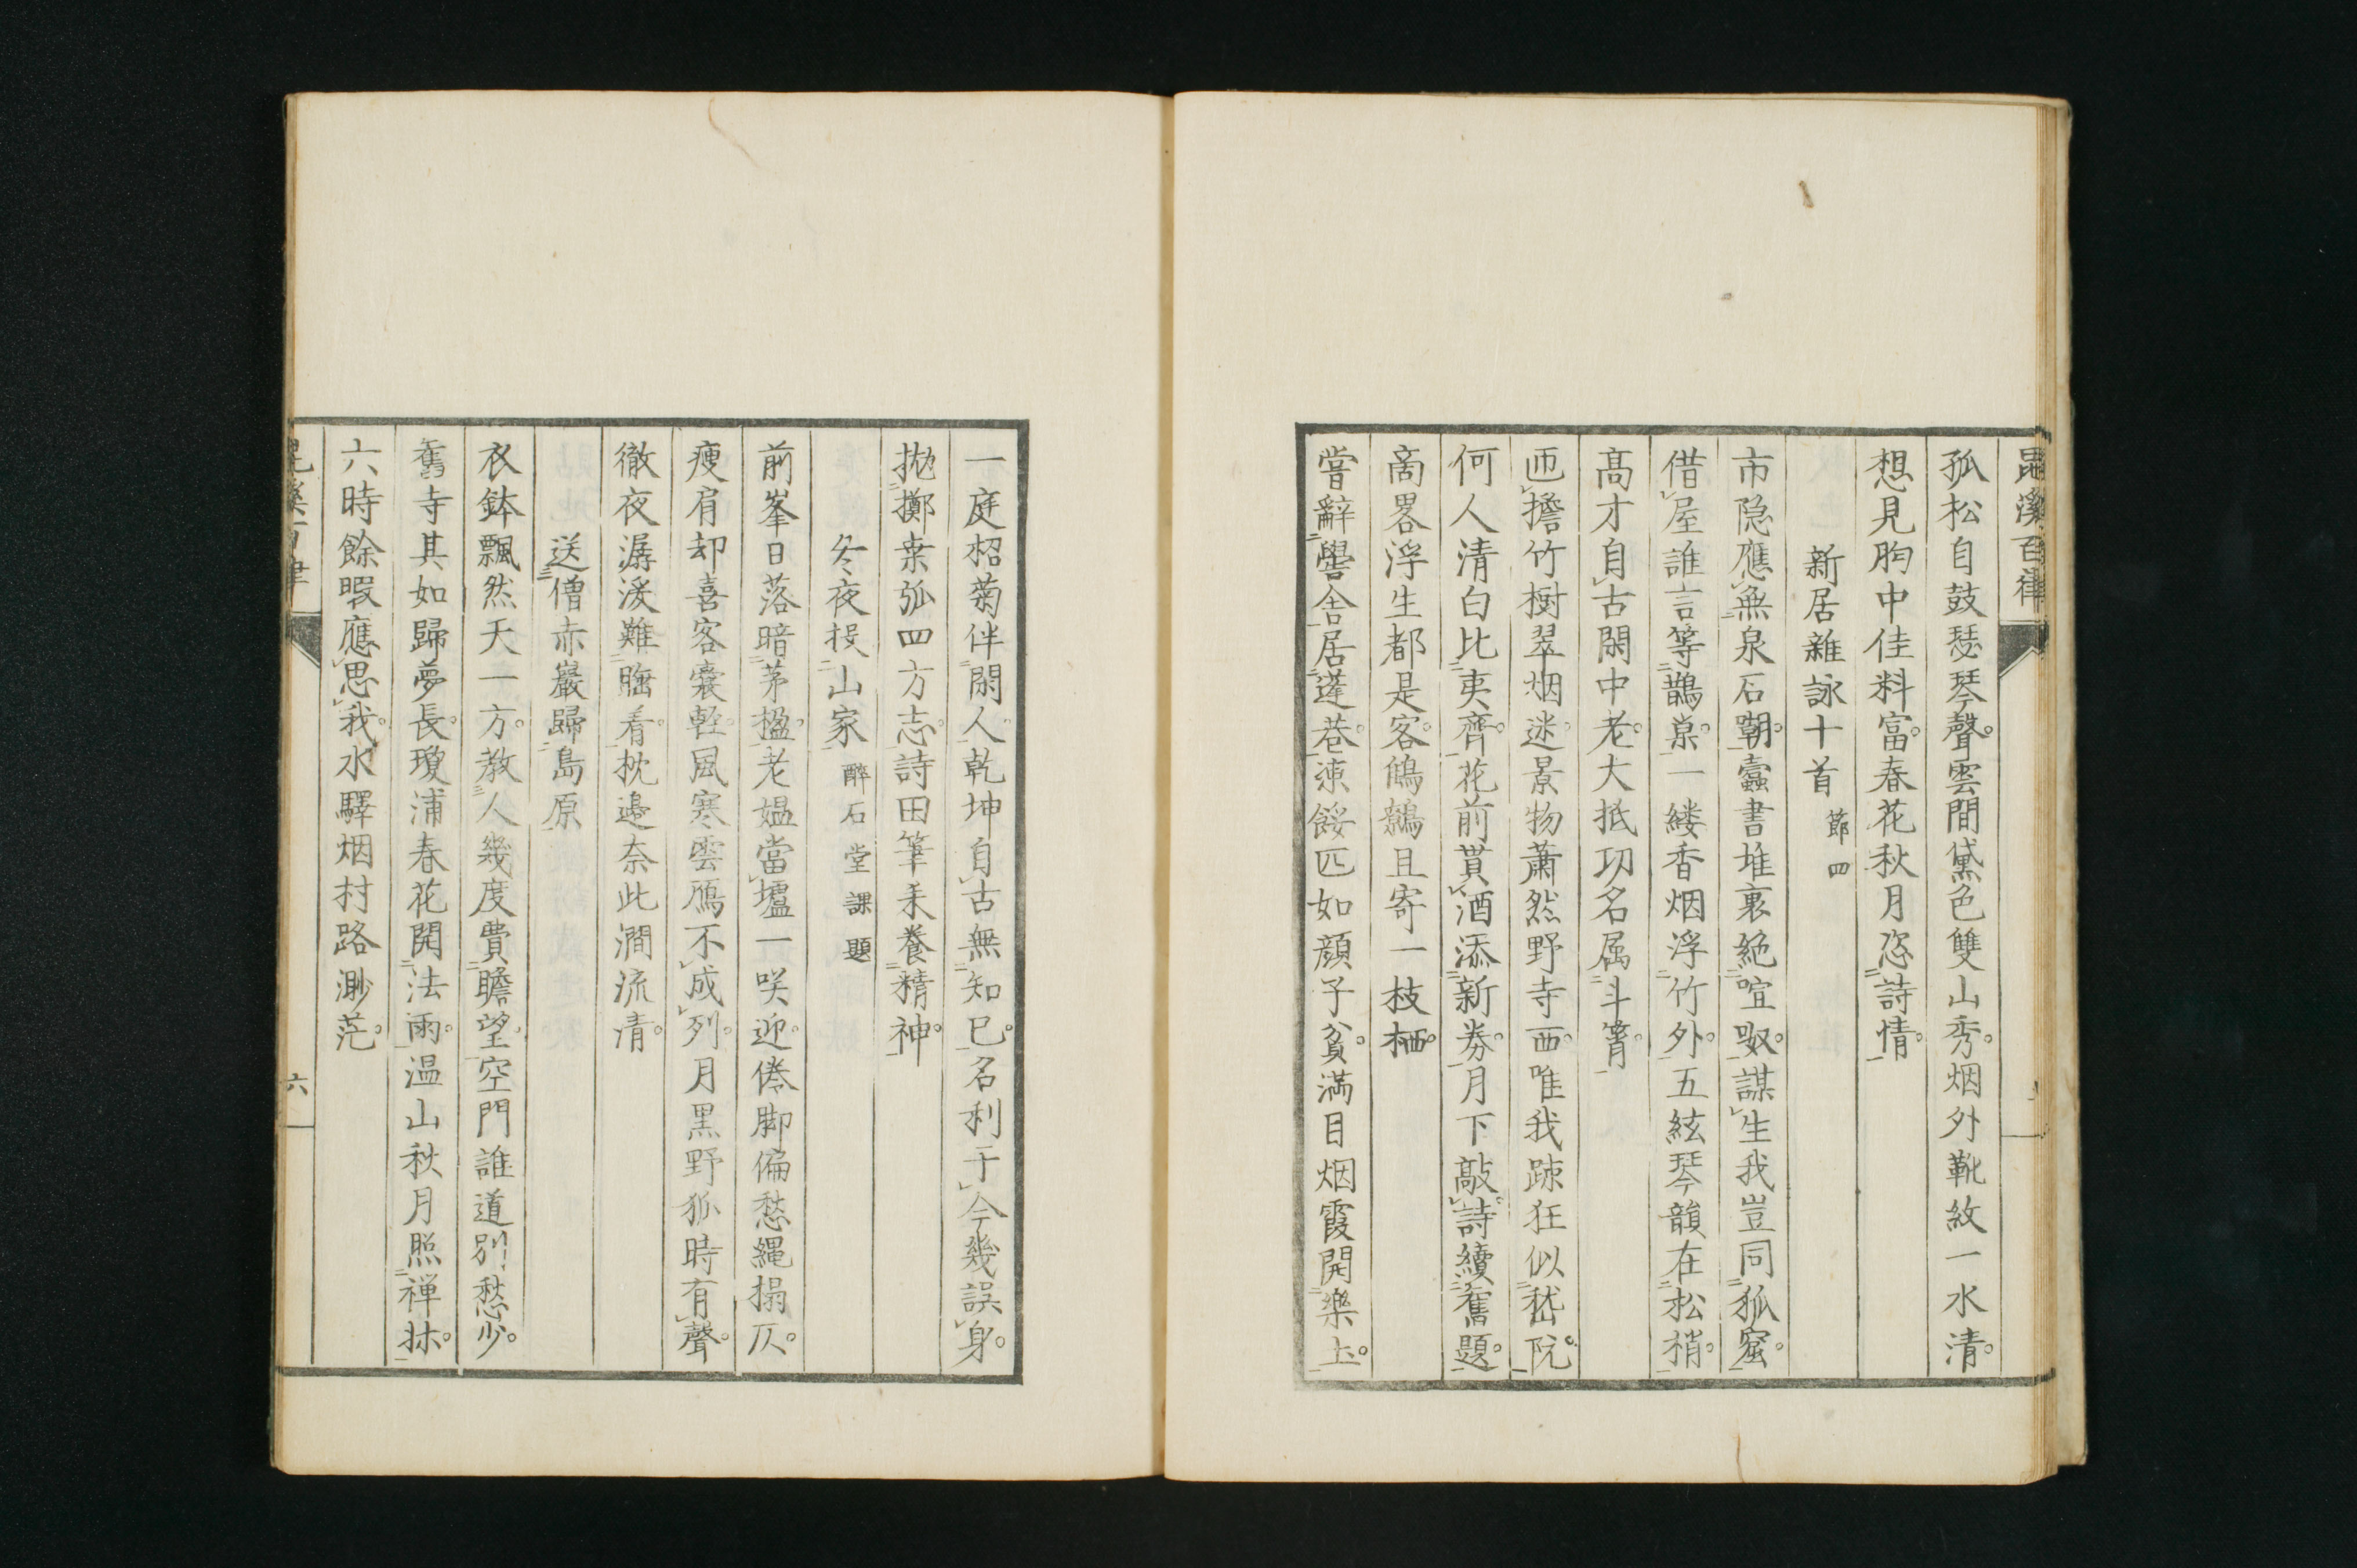 昆溪百律
孤松自鼓瑟琴聲雲間黛色雙山秀烟外靴紋一水清
想見胸中佳料富春花秋月恣詩情
新居雜詠十首 節四
市隐應無泉石嘲蠹書堆裏絶喧呶謀生我豈同狐窟
借屋誰言等鵲巢一縷香烟浮竹外五絃琴韻在松梢
高才自古閑中老大抵功名属斗筲
匝擔竹樹翠烟迷景物蕭然野寺西唯我踈狂似嵇阮
何人清白比夷齊花前貰酒添新券月下敲詩續舊題
啇畧浮生都是客鷦鷯且寄一枝栖
嘗辭黌舎居蓬巷凍餒匹如顔子貧満目烟霞開樂土
一庭松菊伴閑人乾坤自古無知已名利于今幾誤身
抛擲桒弧四方志詩田筆耒養精神
冬夜投山家 醉石堂課題
前峯日落暗茅楹老媼當壚一咲迎倦脚偏愁縄搨仄
瘦肩却喜客囊軽風寒雲鴈不成列月黒野狐時有聲
徹夜潺湲難睡着枕邉奈此澗流清
送僧赤巖歸島原
衣鉢飄然天一方教人幾度費瞻望空門誰道别愁少
舊寺其如歸夢長瓊浦春花開法雨温山秋月照禅牀
六時餘暇應思我水驛烟村路渺茫
昆溪百律
六